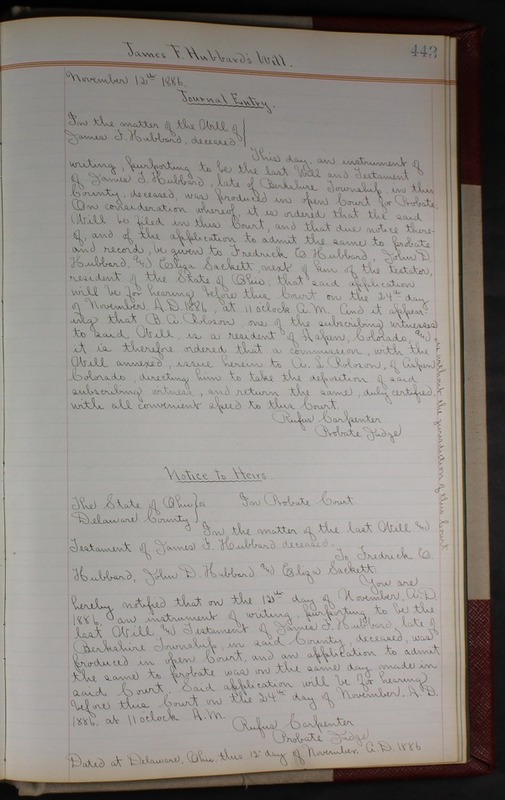 James F. Hubbard's Will.
443
November 12th 1886.
Journal Entry.
In the matter of the Will of
James F. Hubbard, deceased
This day, an instrument of
writing, purporting to be the last Will and Testament
of James F. Hubbard, late of Berkshire Township, in this
County, deceased, was produced in open Court for Probate.
On consideration whereof, it is ordered that the said
Will be filed in this Court, and that due notice there-
of, and of the application to admit the same to probate
and record, be given to Fredrick C. Hubbard, John D.
Hubbard, & Eliza Sackett, next of kin of the testator,
resident of the State of Ohio, that said application
will be for hearing before this Court on the 24th day
of November A.D. 1886, at 11 oclock A.M. And it appear-
ing that B. A. one of the subscribing witnesses
to said Will is a resident of Aspen, Colorado, &
not within the jurisdiction of this Court
it is therefore ordered that a commission, with the
Will annexed, issue herein to of Aspen
Colorado, directing him to take the deposition of said
subscribing witness, and return the same, duly certified,
with all convenient speed to this Court.
Rufus Carpenter
Probate Judge
Notice to Heirs
The State of Ohio
Delaware County, In Probate Court
In the matter of the last Will &
Testament of James F. Hubbard deceased.
To Fredrick C.
Hubbard, John D. Hubbard & Eliza Sackett.
You are
hereby notified that on the 12th day of November, A.D.
1886, an instrument of writing, purporting to be the
last Will & Testament of James F. Hubbard, late of
Berkshire Township, in said County, deceased, was
produced in open Court, and an application to admit
the same to probate was on the same day made in
said Court. Said application will be for hearing
before this Court on the 24th day of November, A.D.
1886, at 11 oclock A.M.
Rufus Carpenter
Probate Judge
Dated at Delaware, Ohio, this 12 day of November, A.D. 1886